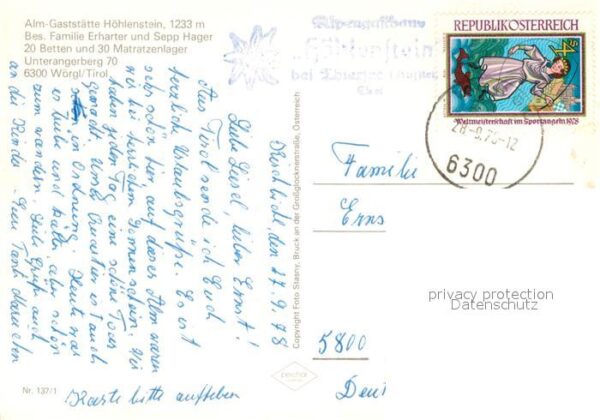 Alm-Gaststätte Höhlenstein, 1233 m
Bes. Familie Erharter und Sepp Hager
20 Betten und 30 Matratzenlager
Unterangerberg 70
6300 Wörgl/Tirol
Alpengasthaus
Höhlenstein
bei
REPUBLIK ÖSTERREICH
Weltmeisterschaft im Sportangeln 1978
6300
den 17.9.78
Liebe Liesel, lieber Ernst!
Aus Tirol sende ich Euch
herzliche Urlaubsgrüße. Es ist
sehr schön hier, auf dieser Alm waren
wir bei
haben jeden Tag eine schöne Tour
gemacht. Unser Quartier ist auch
in Ordnung. Heute war
es trübe und kälter, aber schön
zum wandern. Liebe Grüße auch
an die Kinder. Eure Tante
Karte bitte aufheben
Nr. 137/1
Copyright Foto Stasny, Bruck an der Großglocknerstraße, Österreich
Familie
Erns
5800
privacy protection
Datenschutz